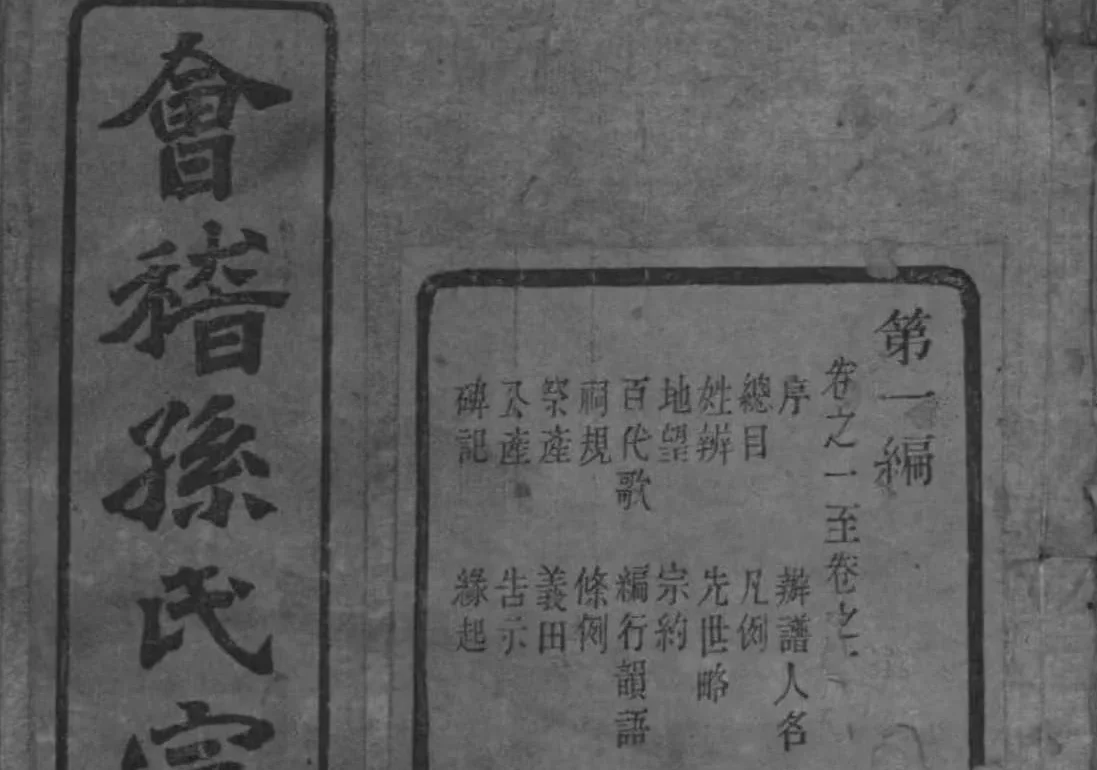 會稽孫氏
第一編
卷之一至卷之
序 辦譜人名
總目 凡例
姓辨 先世略
地望 宗約
百代歌 編行韻語
祠規 條例
祭產 義田
公產 告示
碑記 緣起